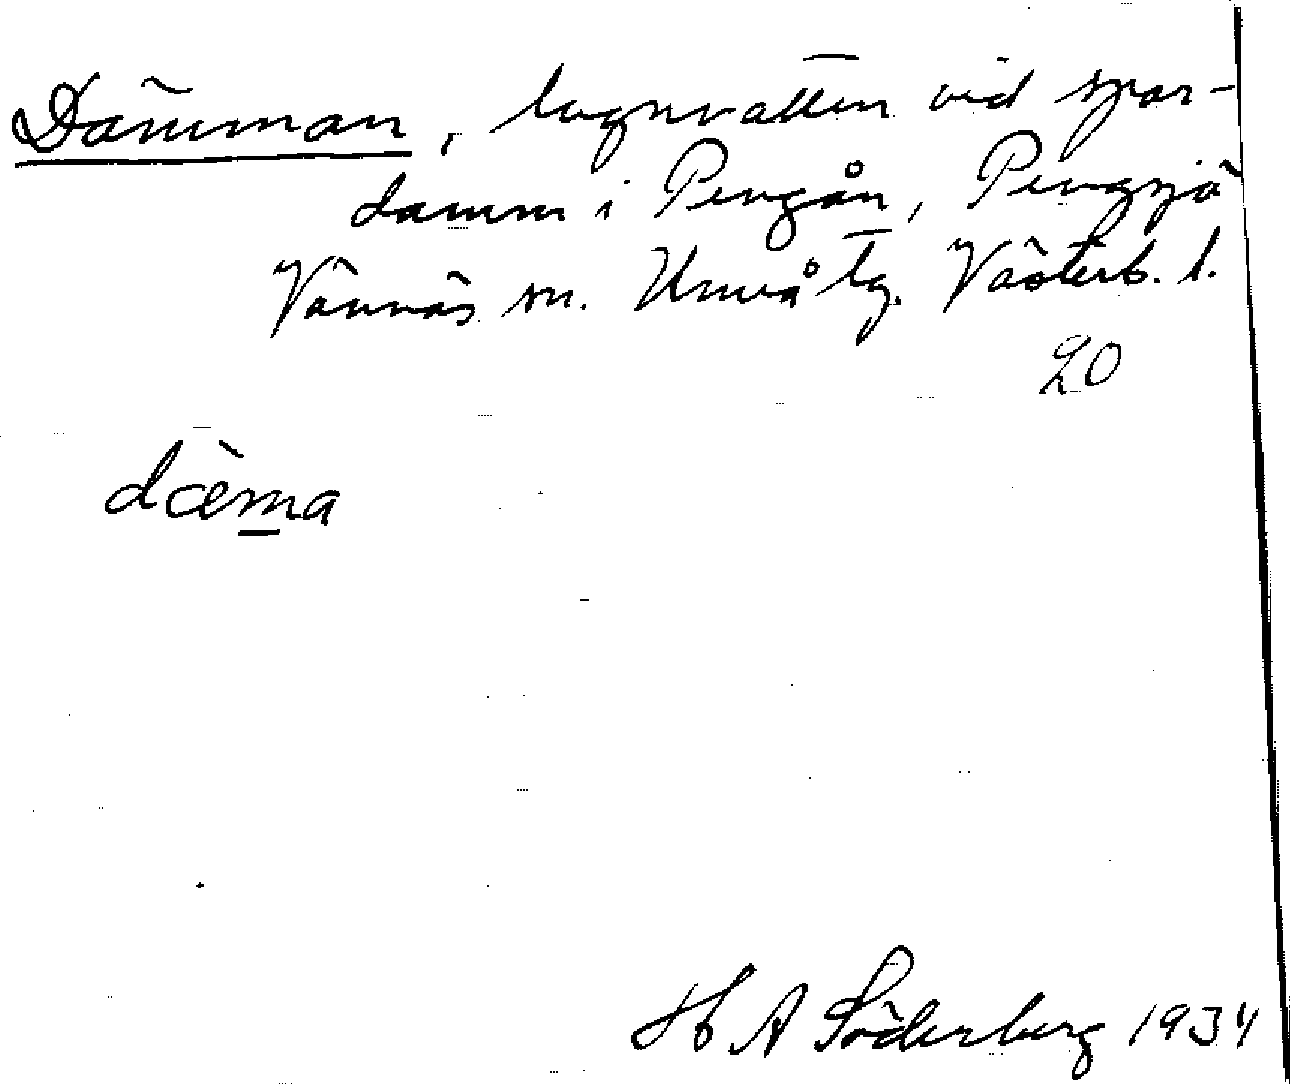 Dämman, lugnvatten vid spar-
damm i Pengån, Pengsjö
Vännäs sn. Umeå tg. Västerb. l.
20
dæ̀ma
H A Söderberg 1934